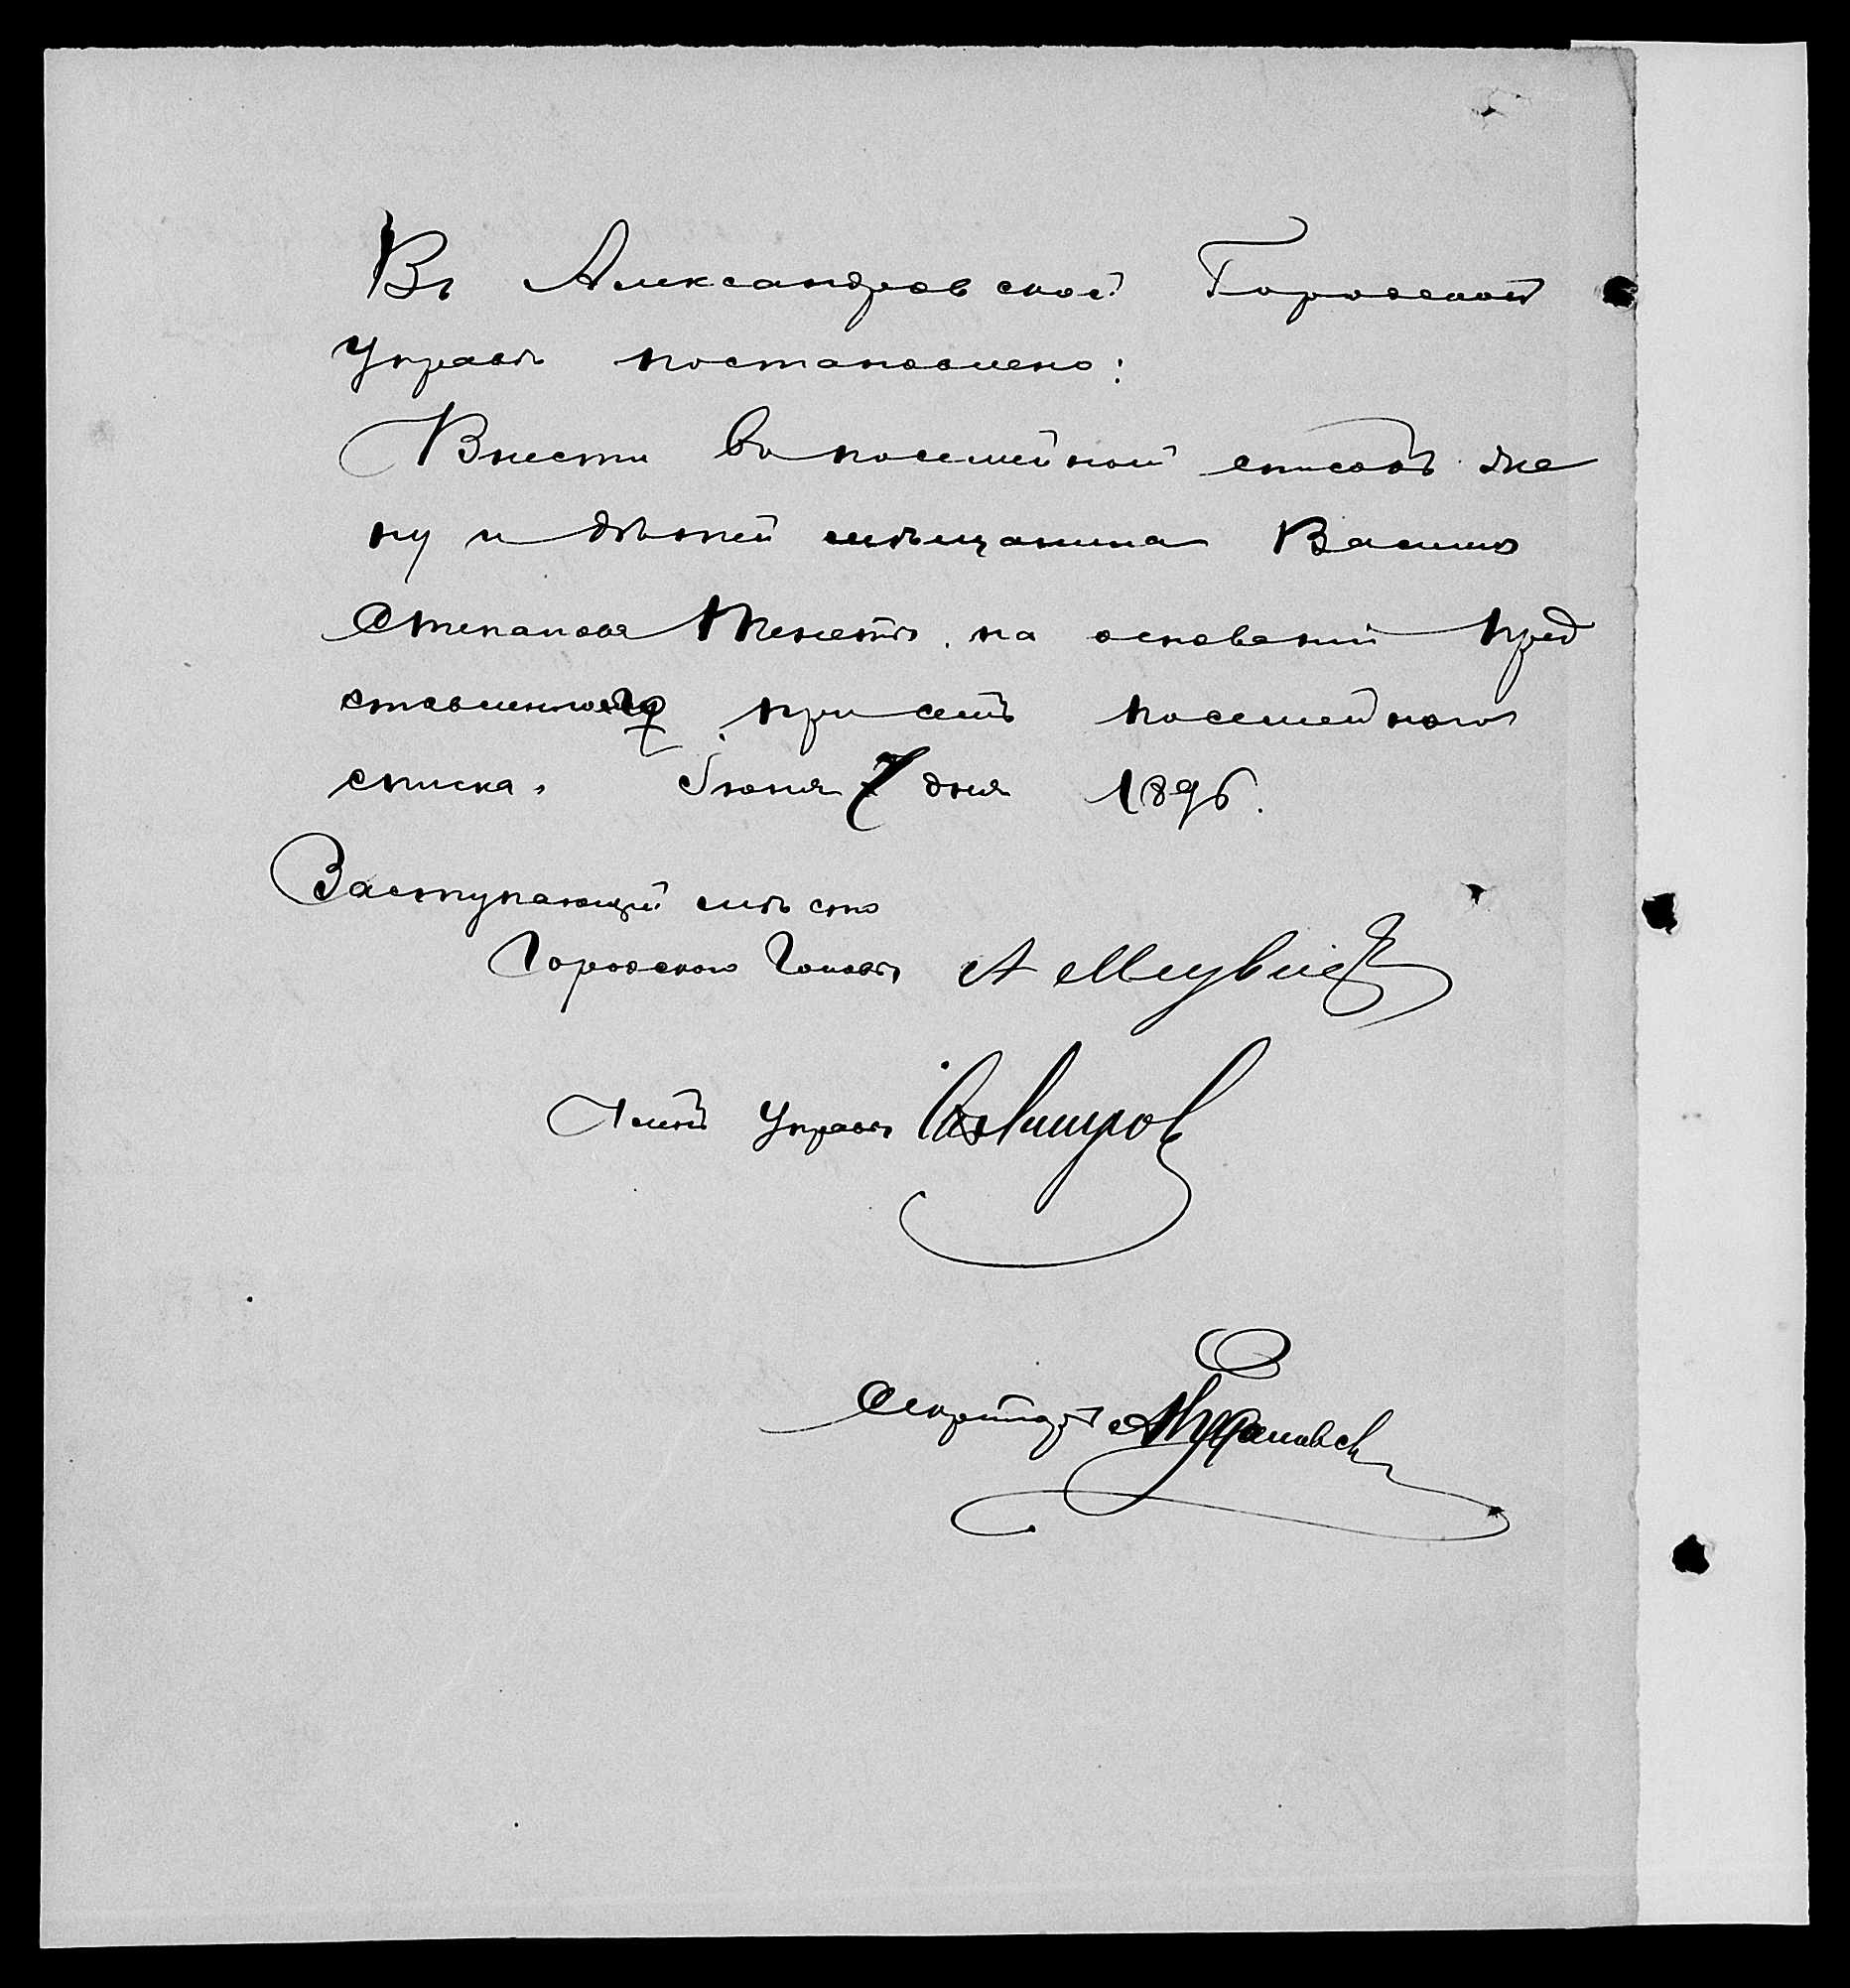 Въ Александровской Городской
Управѣ постановлено:
Внести въ посемейной списокъ же
ну и дѣтей мѣщанина Василія
Степанова на основаніи пред
ставленного при семъ посемейного
списка. Іюня 7 дня 1896.
Заступающій мѣсто
Городского Головы А
Членъ Управы
Секретарь